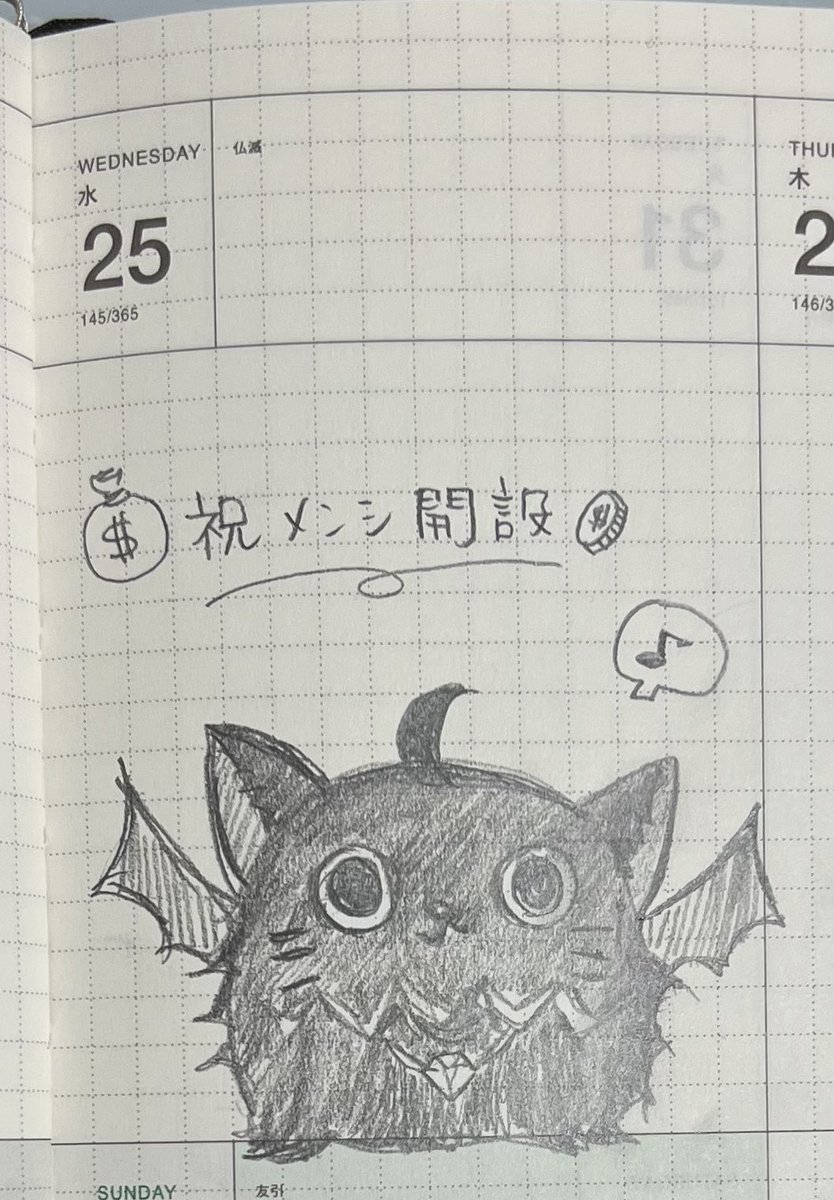 WEDNESDAY
仏滅
水
25
145/365
THU
木
2
146/3
$ 祝メンシ開設 $
SUNDAY
友引